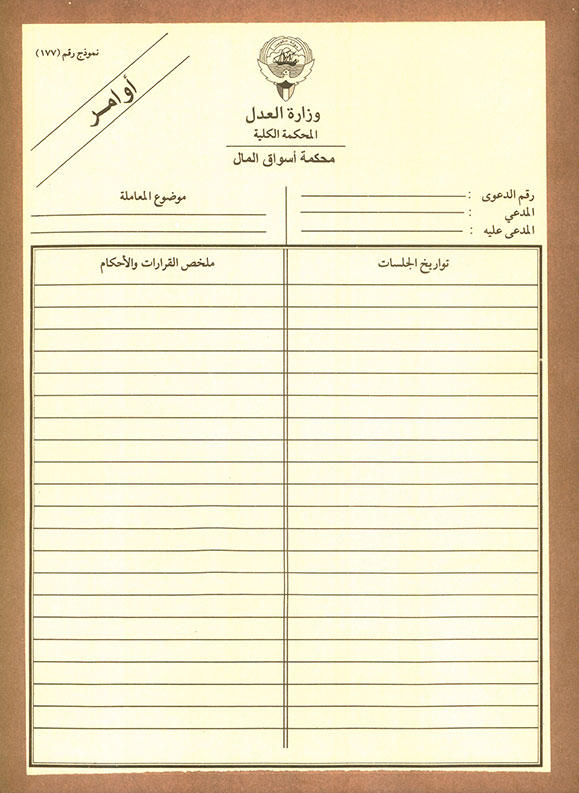 نموذج رقم (١٧٧)
أوامر
وزارة العدل
المحكمة الكلية
محكمة أسواق المال
رقم الدعوى :
المدعي :
المدعى عليه :
موضوع المعاملة
تواريخ الجلسات
ملخص القرارات والأحكام